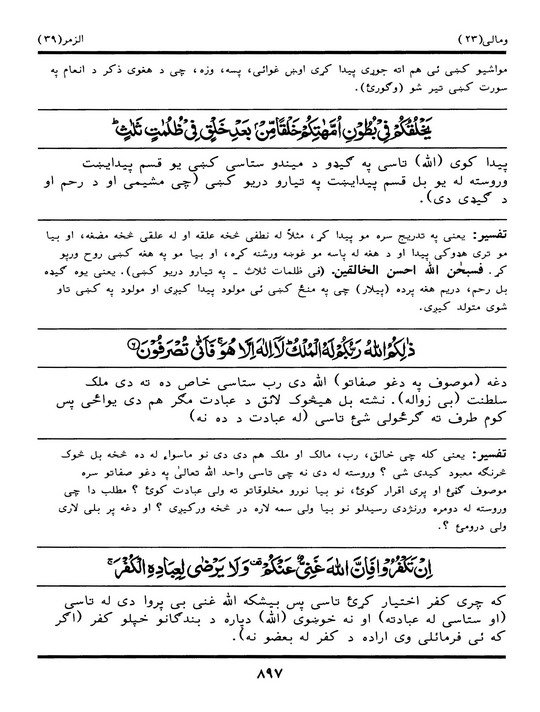 ومالی(۲۳)
الزمر(۳۹)
مواشیو کښی ئی هم اته جوړی پیدا کړی اوښ غوائی، پسه، وزه، چی د هغوی ذکر د انعام په
سورت کښی تیر شو (وګورئ).
يَخْلُقُكُمْ فِيْ بُطُوْنِ اُمَّهٰتِكُمْ خَلْقًا مِّنْۢ بَعْدِ خَلْقٍ فِيْ ظُلُمٰتٍ ثَلٰثٍ ؕ
پیدا کوی (الله) تاسی په ګیډو د میندو ستاسی کښی یو قسم پیدایښت
وروسته له یو بل قسم پیدایښت په تیارو دریو کښی (چی مشیمی او د رحم او
د ګیډی دی).
تفسیر: یعنی په تدریج سره مو پیدا کړ، مثلاً له نطفی څخه علقه او له علقی څخه مضغه، او بیا
مو تری هډوکی پیدا او د هغه له پاسه مو غوښه ورشته کړه، او بیا مو په هغه کښی روح ورپو
کړ. فسبحٰن الله احسن الخالقین. (فی ظلمات ثلاث ـ په تیارو دریو کښی). یعنی یوه ګیډه
بل رحم، دریم هغه پرده (پیلار) چی په منځ کښی ئی مولود پیدا کیږی او مولود په کښی تاو
شوی متولد کیږی.
ذٰلِكُمُ اللّٰهُ رَبُّكُمْ لَهُ الْمُلْكُ ؕ لَاۤ اِلٰهَ اِلَّا هُوَ ۚ فَاَنّٰى تُصْرَفُوْنَ ۶
دغه (موصوف په دغو صفاتو) الله دی رب ستاسی خاص ده ته دی ملک
سلطنت (بی زواله). نشته بل هیڅوک لائق د عبادت مګر هم دی یواځی پس
کوم طرف ته ګرځولی شئ تاسی (له عبادت د ده نه)
تفسیر: یعنی کله چی خالق، رب، مالک او ملک هم دی دی نو ماسواء له ده څخه بل څوک
څرنګه معبود کیدی شی ؟ وروسته له دی نه چی تاسی واحد الله تعالیٰ په دغو صفاتو سره
موصوف ګڼئ او پری اقرار کوئ، نو بیا نورو مخلوقاتو ته ولی عبادت کوئ ؟ مطلب دا چی
وروسته له دومره ورنژدی رسیدلو نو بیا ولی سمه لاره در څخه ورکیږی ؟ او دغه پر بلی لاری
ولی درومئ ؟.
اِنْ تَكْفُرُوْا فَاِنَّ اللّٰهَ غَنِيٌّ عَنْكُمْ ۫ وَلَا يَرْضٰى لِعِبَادِهِ الْكُفْرَ ۚ
که چری کفر اختیار کړئ تاسی پس بیشکه الله غنی بی پروا دی له تاسی
(او ستاسی له عبادته) او نه خوښوی (الله) دپاره د بندګانو خپلو کفر (اګر
که ئی فرمائلی وی اراده د کفر له بعضو نه).
۸۹۷